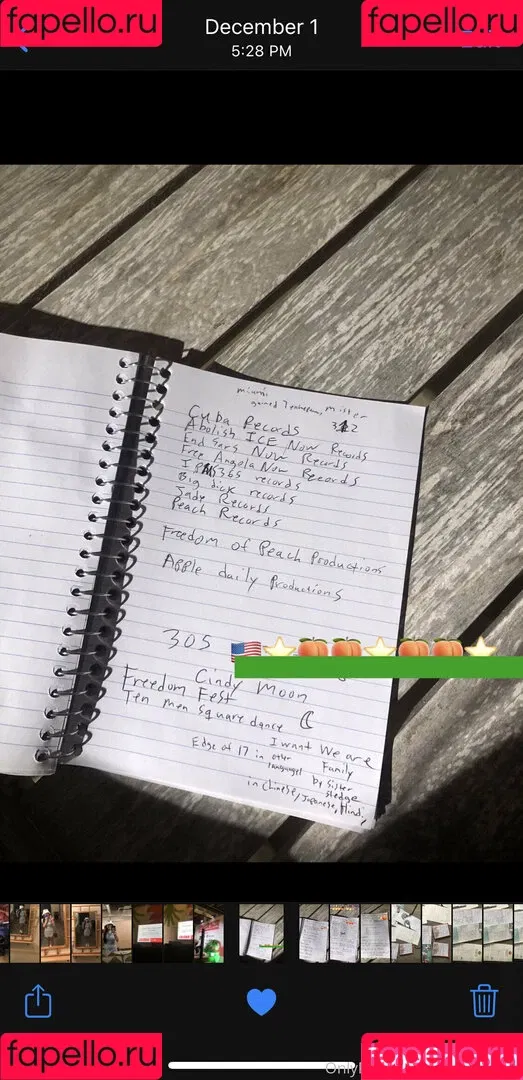 fapello.ru
fapello.ru
December 1
5:28 PM
miami
gained 7 enheum, Mister
Cuba Records 3 2
Abolish ICE Now Records
End Sars Now Records
Free Angela Now Records
I 365 records
Big dick records
Jade Records
Peach Records
Freedom of Peach Productions
Apple daily Productions
305
Cindy Moon
Freedom Fest
Ten men square dance
I want We are
Family
Edge of 17 in other
languages
by Sister
sledge
in Chinese, Japanese, Hindi,
fapello.ru
fapello.ru